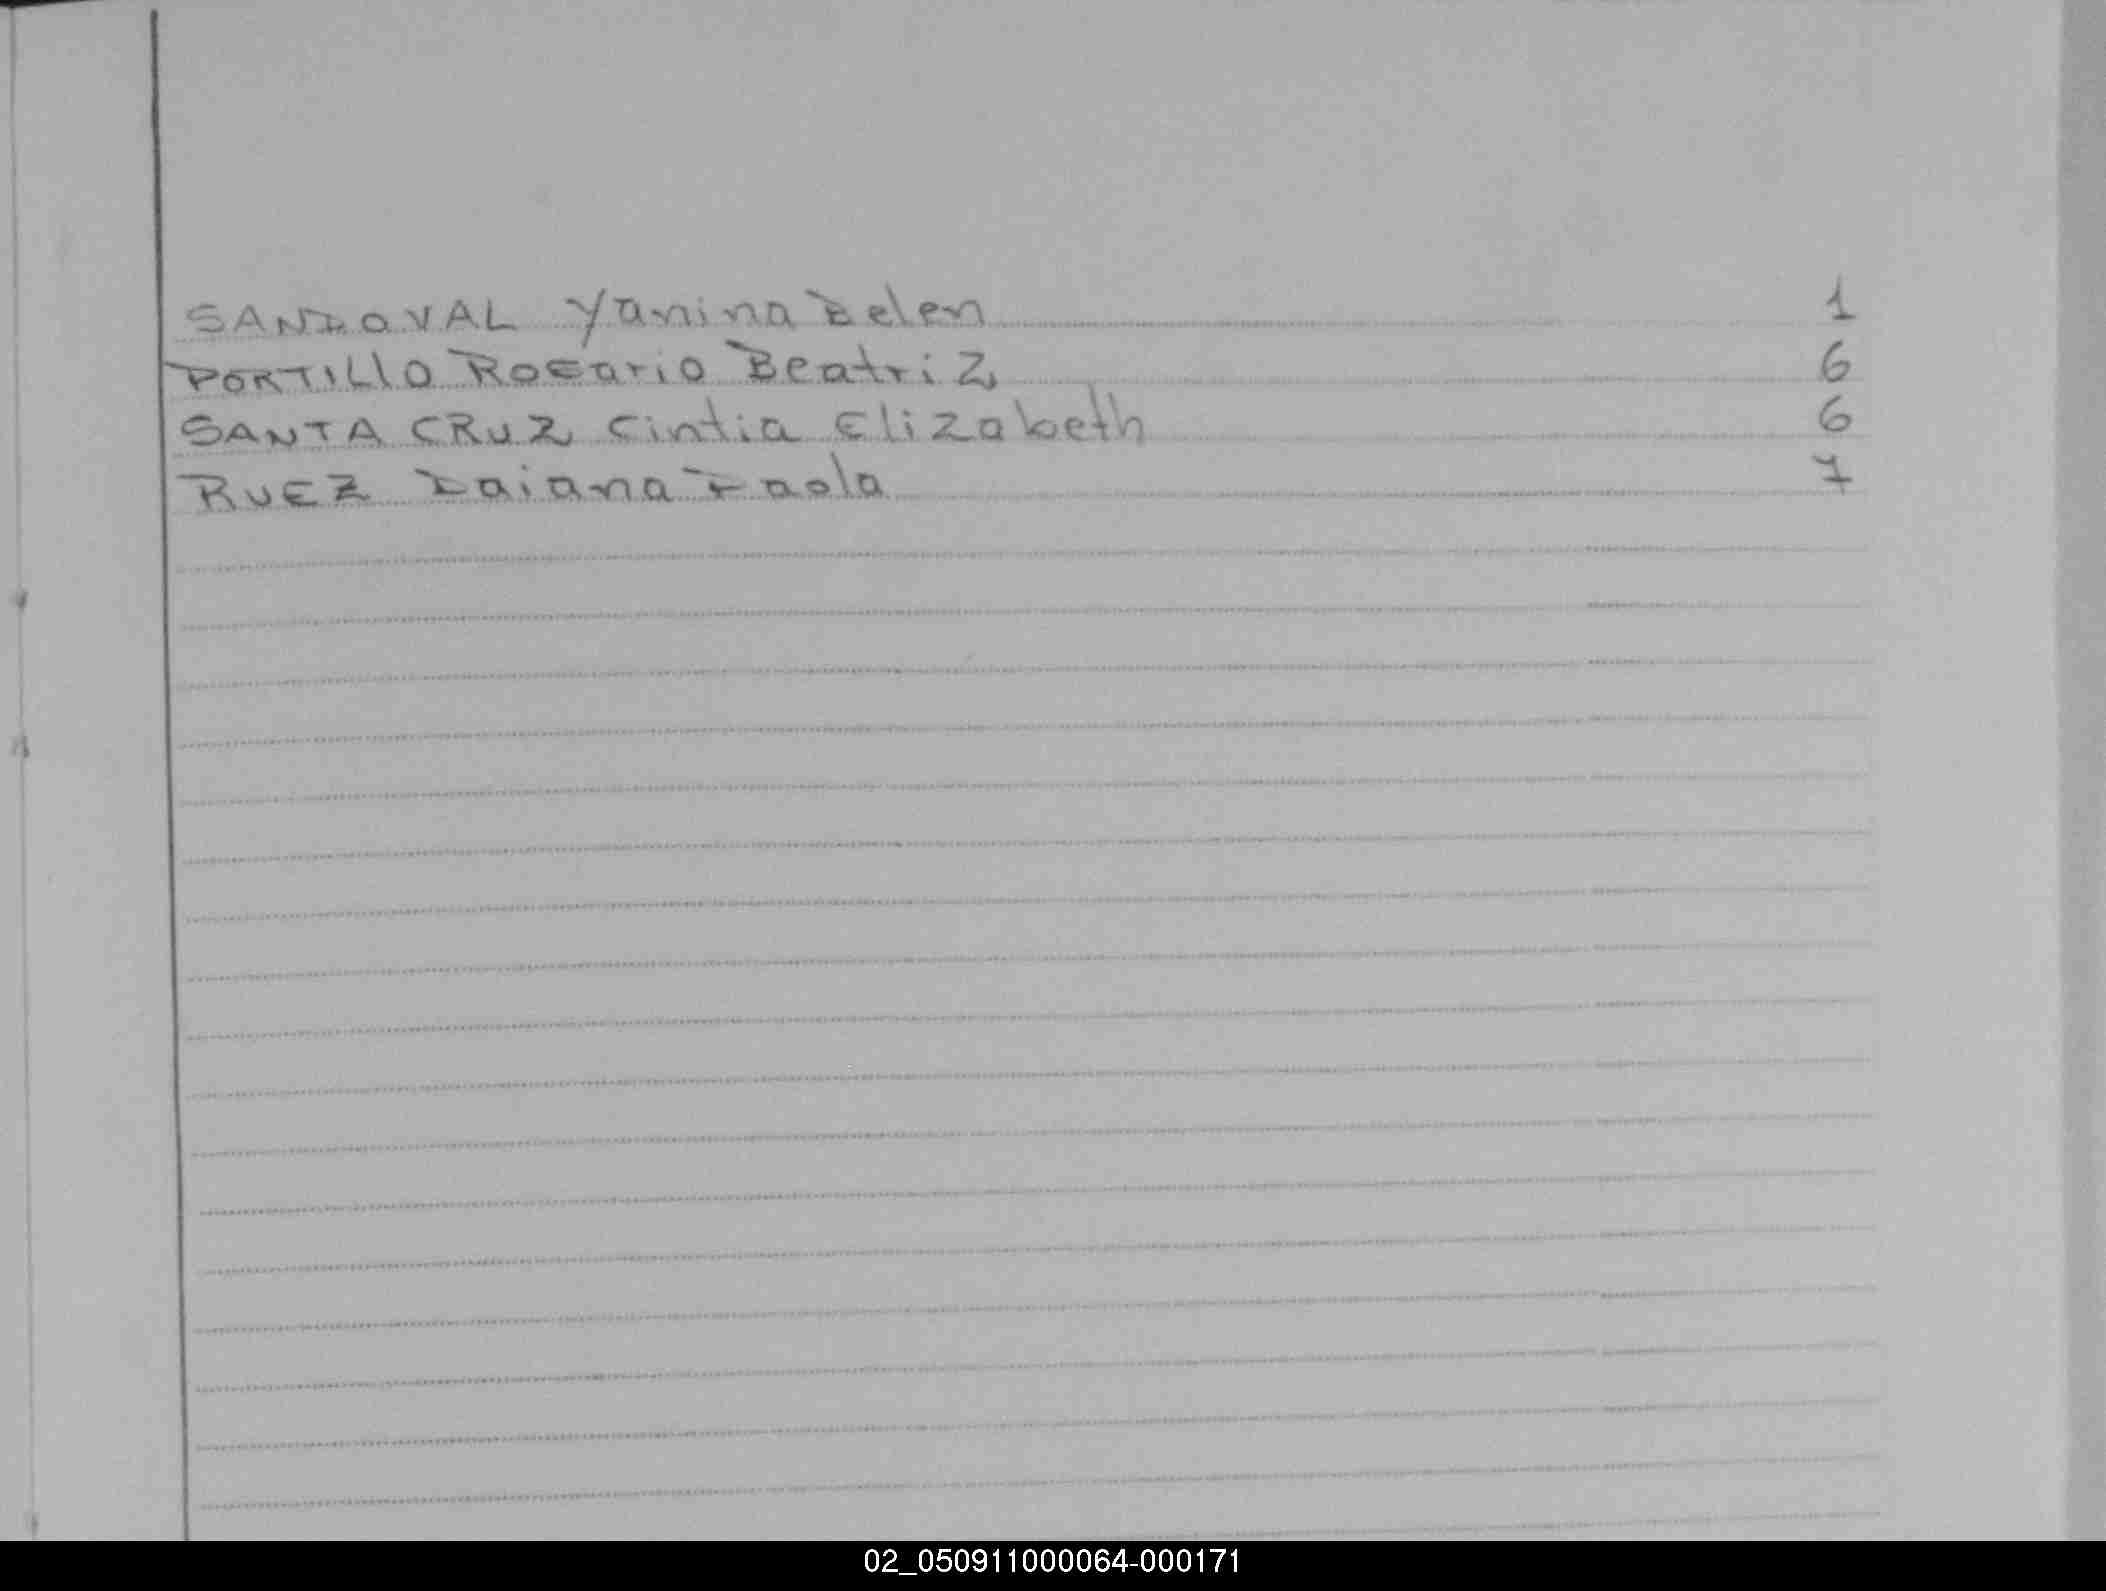 SANDOVAL Yanina Belen 1
PORTILLO Rosario Beatriz 6
SANTA CRUZ Cintia Elizabeth 6
RUEZ Daiana Paola 7
02_050911000064-000171